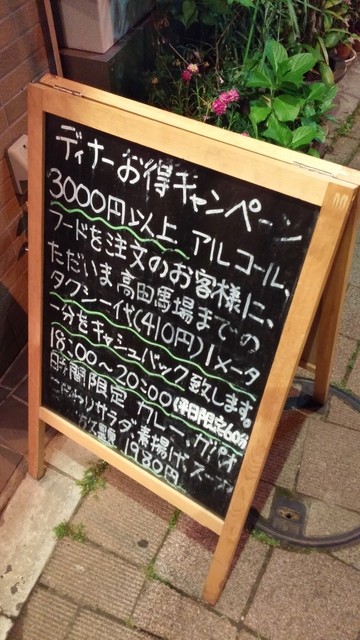 ディナーお得キャンペーン
3000円以上、アルコール、
フードを注文のお客様に、
ただいま高田馬場までの
タクシー代(410円)1メータ
ー分をキャシュバック致します。
18:00〜20:00(平日限定60分)
時間限定 カレー、ガパオ
こだわりサラダ 素揚げ、スープ
1980円